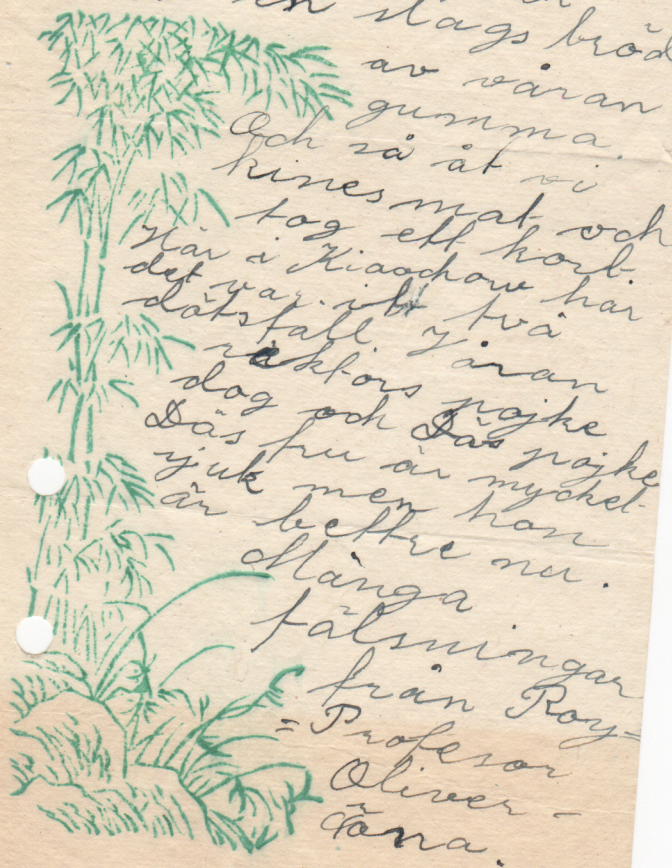 en slags bröd
av våran
gumma.
Och så åt vi
kines mat och
tog ett kort.
Här i Kiaochow har
det var it två
dötsfall våran
rektors pojke
dog och Däs pojke
Däs fru är mycket
sjuk men hon
är bettre nu.
Många
hälsningar
från Roy=
=Profesor
Oliver-